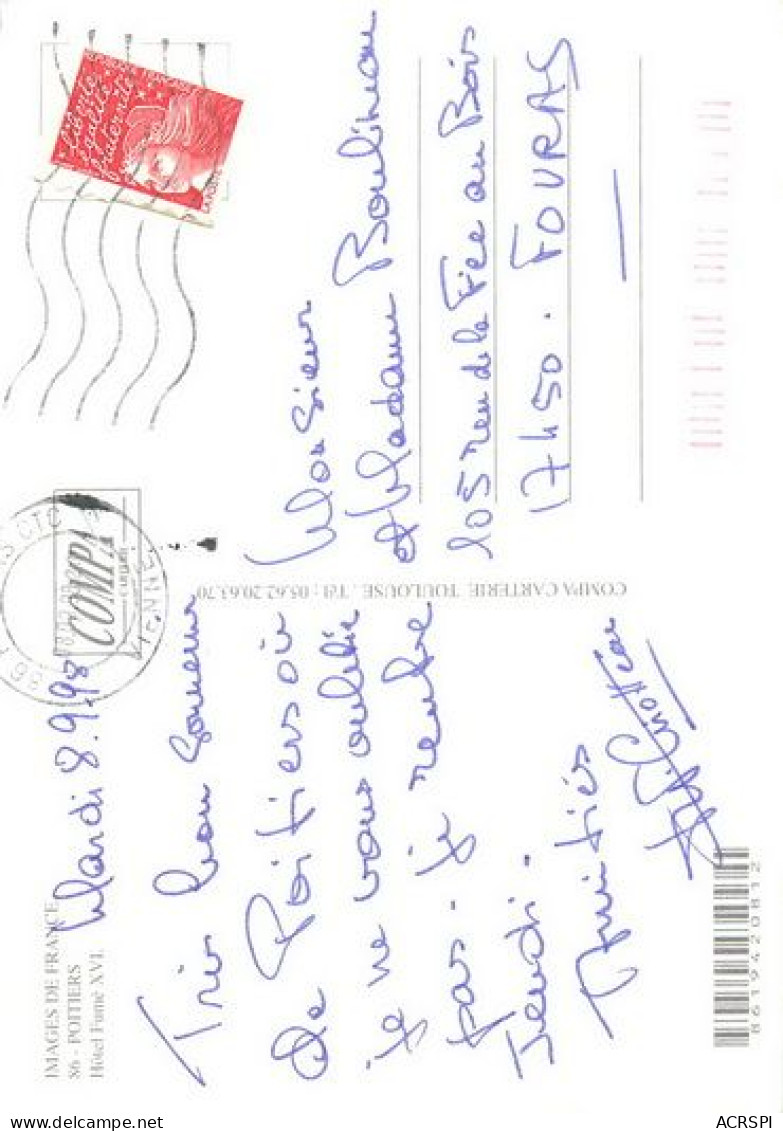 IMAGES DE FRANCE
86 - POITIERS
Hôtel Fumé XVI.
Mardi 8.9.98
Très bon souvenir
de Poitiers où
je ne vous oublie
pas - je rentre
Jeudi -
Amitiés
COMPA CARTERIE TOULOUSE . Tél : 05.62.20.63.70
COMPA
CARTERIE
Liberté
égalité
fraternité
LA POSTE
VIENNE
Monsieur
et Madame Boulineau
105 rue de la Fée au Bois
17450 . FOURAS
8619420812
ACRSPI